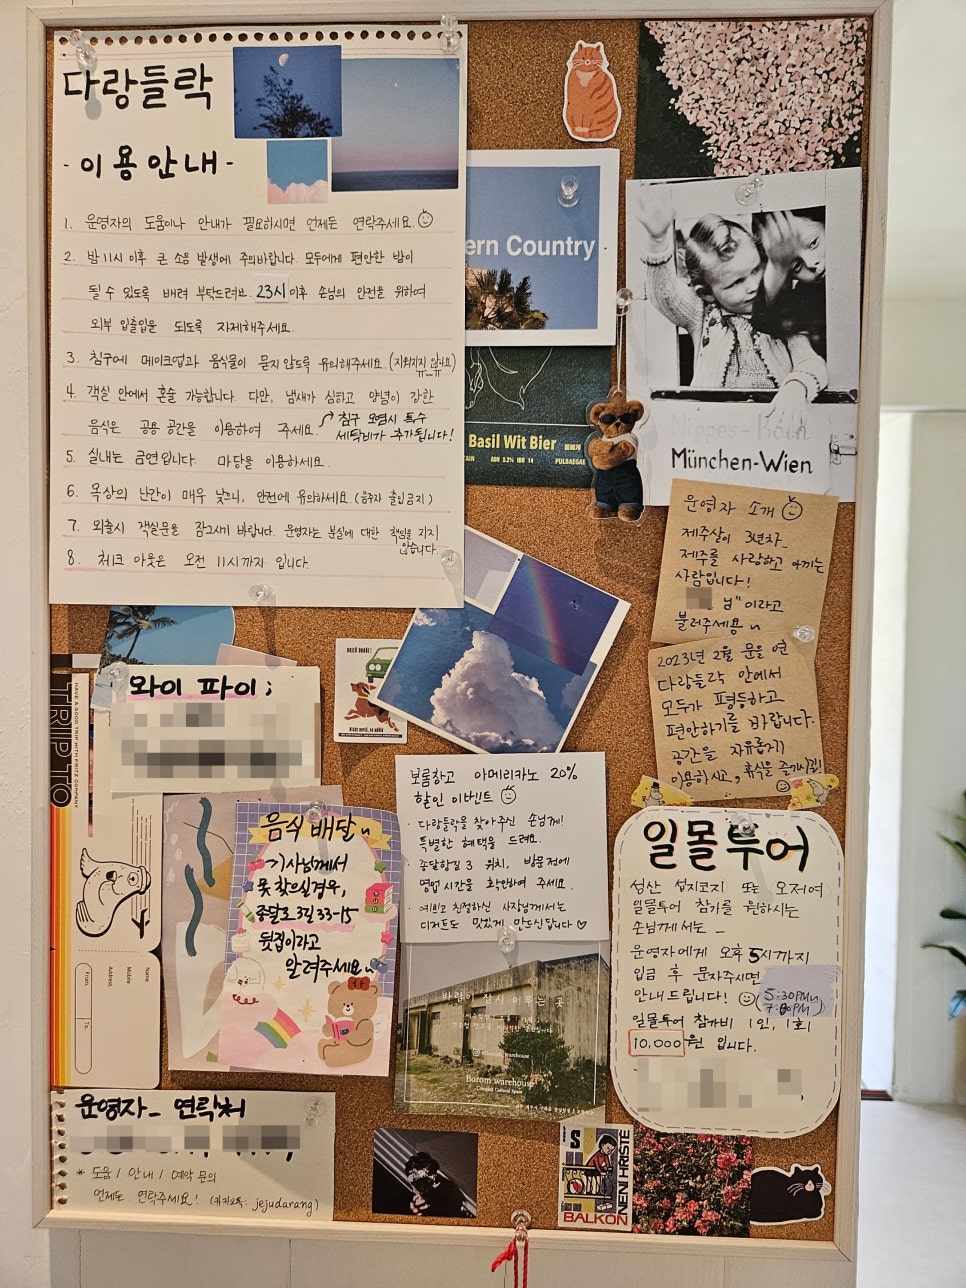 다랑들락
- 이용안내 -
1. 운영자의 도움이나 안내가 필요하시면 언제든 연락주세요.
2. 밤 11시 이후 큰 소음 발생에 주의바랍니다. 모두에게 편안한 밤이
될 수 있도록 배려 부탁드려요. 23시 이후 손님의 안전을 위하여
외부 입출입은 되도록 자제해주세요.
3. 침구에 메이크업과 음식물이 묻지 않도록 유의해주세요. (지워지지 않아요)
ㅠㅠ
4. 객실 안에서 혼술 가능합니다. 다만, 냄새가 심하고 양념이 강한
음식은 공용 공간을 이용하여 주세요.
침구 오염시 특수
세탁비가 추가됩니다!
5. 실내는 금연입니다. 마당을 이용하세요.
6. 옥상의 난간이 매우 낮으니, 안전에 유의하세요. (음주자 출입금지)
7. 외출시 객실문을 잠그시기 바랍니다. 운영자는 분실에 대한 책임을 지지
않습니다.
8. 체크 아웃은 오전 11시까지 입니다.
ern Country
Basil Wit Bier
ABV 5.2% IBU 14
PULBAEGAE
Nippes - Köln
München-Wien
운영자 소개
제주살이 3년차_
제주를 사랑하고 아끼는
사람입니다!
님"이라고
불러주세용
2023년 2월 문을 연
다랑들락 안에서
모두가 평등하고
편안하기를 바랍니다.
공간을 자유롭게
이용하시고, 휴식을 즐기시길!
와이 파이;
TRIP TO
HAVE A GOOD TRIP WITH FRITZ COMPANY
Name
Mobile
Address
From.
To
음식 배달
기사님께서
못 찾으실경우,
종달로 3길 33-15
뒷집이라고
알려주세요
보롬창고 아메리카노 20%
할인 이벤트
· 다랑들락을 찾아주신 손님께!
특별한 혜택을 드려요.
· 종달항길 3 위치, 방문전에
영업 시간을 확인하여 주세요.
· 예쁘고 친절하신 사장님께서는
디저트도 맛있게 만드신답니다 ♡
바람이 잠시 머무는 곳
Borom warehouse
일몰투어
성산 섭지코지 또는 오저여
일몰투어 참가를 원하시는
손님께서는 _
운영자에게 오후 5시까지
입금 후 문자주시면
안내드립니다!
(5:30PM
7:00PM)
일몰투어 참가비 1인, 1회
10,000원 입니다.
운영자_ 연락처
* 도움 / 안내 / 예약 문의
언제든 연락주세요! (카카오톡: jejudarang)
BALKON
NENI HRISTĚ